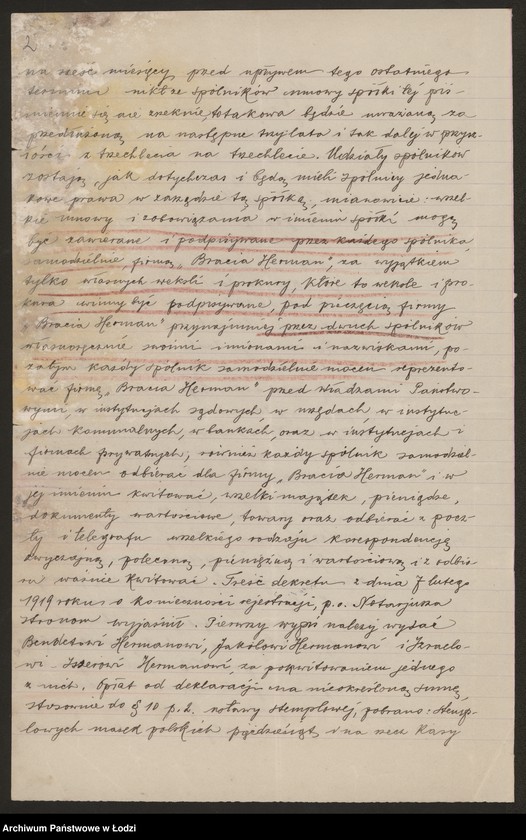 2
na sześć miesięcy przed upływem tego ostatniego
terminu nikt ze spólników umowy spółki tej piś-
miennie się nie zreknie, takowa będzie uważana za
przedłużoną na następne trzy lata i tak dalej w przysz-
łości z trzechlecia na trzechlecie. Udziały spólników
zostają, jak dotychczas i będą mieli spólnicy jedna-
kowe prawa w zarządzie tą spółką, mianowicie: wszel-
kie umowy i zobowiązania w imieniu spółki mogą
być zawierane i podpisywane przez każdego spólnika
samodzielnie, firmą „Bracia Herman", za wyjątkiem
tylko własnych weksli i prokury, które to weksle i pro-
kura winny być podpisywane, pod pieczęcią firmy
„Bracia Herman" przynajmniej przez dwuch spólników
własnoręcznie swoimi imionami i nazwiskami, po-
zatym każdy spólnik samodzielnie mocen reprezento-
wać firmę „Bracia Herman" przed Władzami Państwo-
wymi w instytucjach sądowych w urzędach w instytuc-
jach komunalnych, w bankach, oraz w instytucjach i
firmach prywatnych, również każdy spólnik samodziel-
nie mocen odbierać dla firmy „Bracia Herman" i w
jej imieniu kwitować, wszelki majątek, pieniądze,
dokumenty wartościowe, towary oraz odbierać z pocz-
ty i telegrafu wszelkiego rodzaju korespondencję
zwyczajną, poleconą, pieniężną i wartościową i z odbio-
ru właśnie kwitować. Treść dekretu z dnia 7 lutego
1919 roku o konieczności rejestracji, p.o. Notarjusza
stronom wyjaśnił. Pierwszy wypis należy wydać
Bendetowi Hermanowi, Jakóbowi Hermanowi i Izraelo-
wi - Hermanowi, za pokwitowaniem jednego
z nich. Opłat od deklaracji na nieokreśloną sumę,
stosownie do § 10 p. 2. ustawy stemplowej, pobrano: stemp-
lowych marek polskich pięćdziesiąt i na rzecz Kasy
Archiwum Państwowe w Łodzi